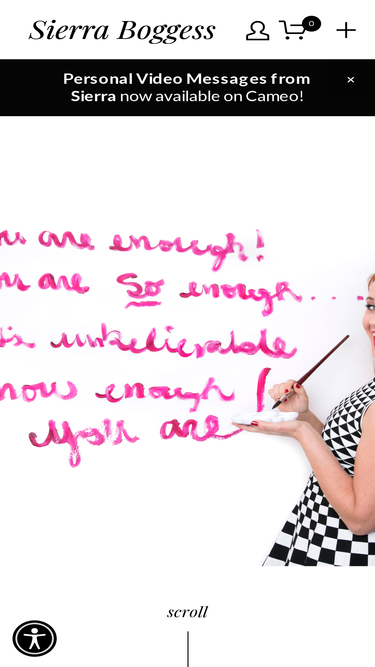 Sierra Boggess
0
Personal Video Messages from
Sierra now available on Cameo!
×
are enough!
are So enough....
unbelievable
enough !
you are
scroll